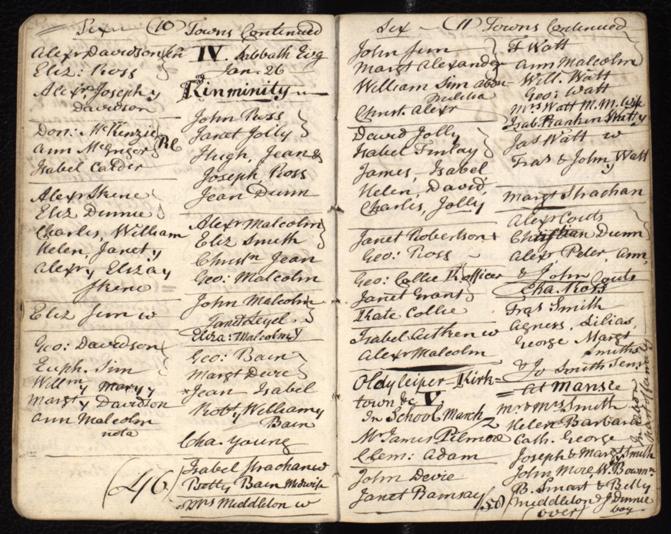 Six (10) Towns Continued
Alexr Davidson
Eliz: Ross
Alexr Joseph y
Davidson
Don: McKenzie
Ann McGrigor
Isabel Calder
Alexr Skene
Eliz Dunnie
Charles, William
Helen, Janet, y
Alexr y Eliza y
Skene
Eliz Sim w
Geo: Davidson
Euph. Sim
Willm y Mary y
Margt y Davidson
Ann Malcolm
nota
(46)
IV. Sabbath Evg
Jan. 26
Kinminity
John Ross
Janet Jolly
Hugh, Jean &
Joseph Ross
Jean Dunn
Alexr Malcolm
Eliz Smith
Christn Jean
Geo: Malcolm
John Malcolm
Janet
Eliza: Malcolm y
Geo: Bain
Margt
Jean Isabel
Robt y William y
Bain
Cha. Young
Isabel Strachan w
Betty Bain Midwife
Mrs Middleton w
Six (11) Towns Continued
John Sim
Margt Alexander
William Sim
Militia
Christ. Alexr
David Jolly
Isabel Finlay
James, Isabel
Helen, David,
Charles, Jolly
Janet Robertson
Geo: Ross
Geo: Collie K officer
Janet Grant
Kate Collie
Isabel Aitken w
Alexr Malcolm
Kirk-
town &c V
In School March 2
Mr James
Clem: Adam
John
Janet Ramsay
Watt
Ann Malcolm
Will. Watt
Geo: Watt
Mrs Watt M.M. Wife
Jas Watt w
Fras & John y Watt
Margt Strachan
Alexr Couts
Christian Dunn
Alexr, Peter, Ann,
& John Couts
Cha. Ross
Fras Smith
Agness, Lilias,
George Margt
Smiths
& Jo Smith Senr
At Manse
Mr & Mrs Smith
Helen Barbara
Cath. George
Joseph & Margt Smith
John More W. Bown
B. Smart & Betty
Middleton & J Dunnie
(over) boy